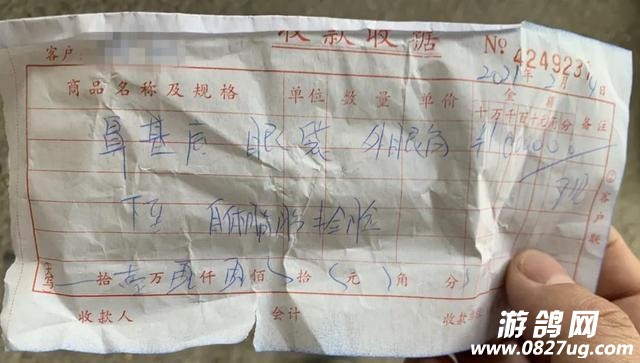 收款收据
客户： № 4249231
2021年2月4日
商品名称及规格 单位 数量 单价 金额 备注
十万千百十元角分
鼻基底 眼袋 外眼角
下至 自体脂肪 全脸
②客户联
拾 万 伍仟 伍佰 拾 元 角 分
收款人 会计 收款
游鸽网
www.0827ug.com